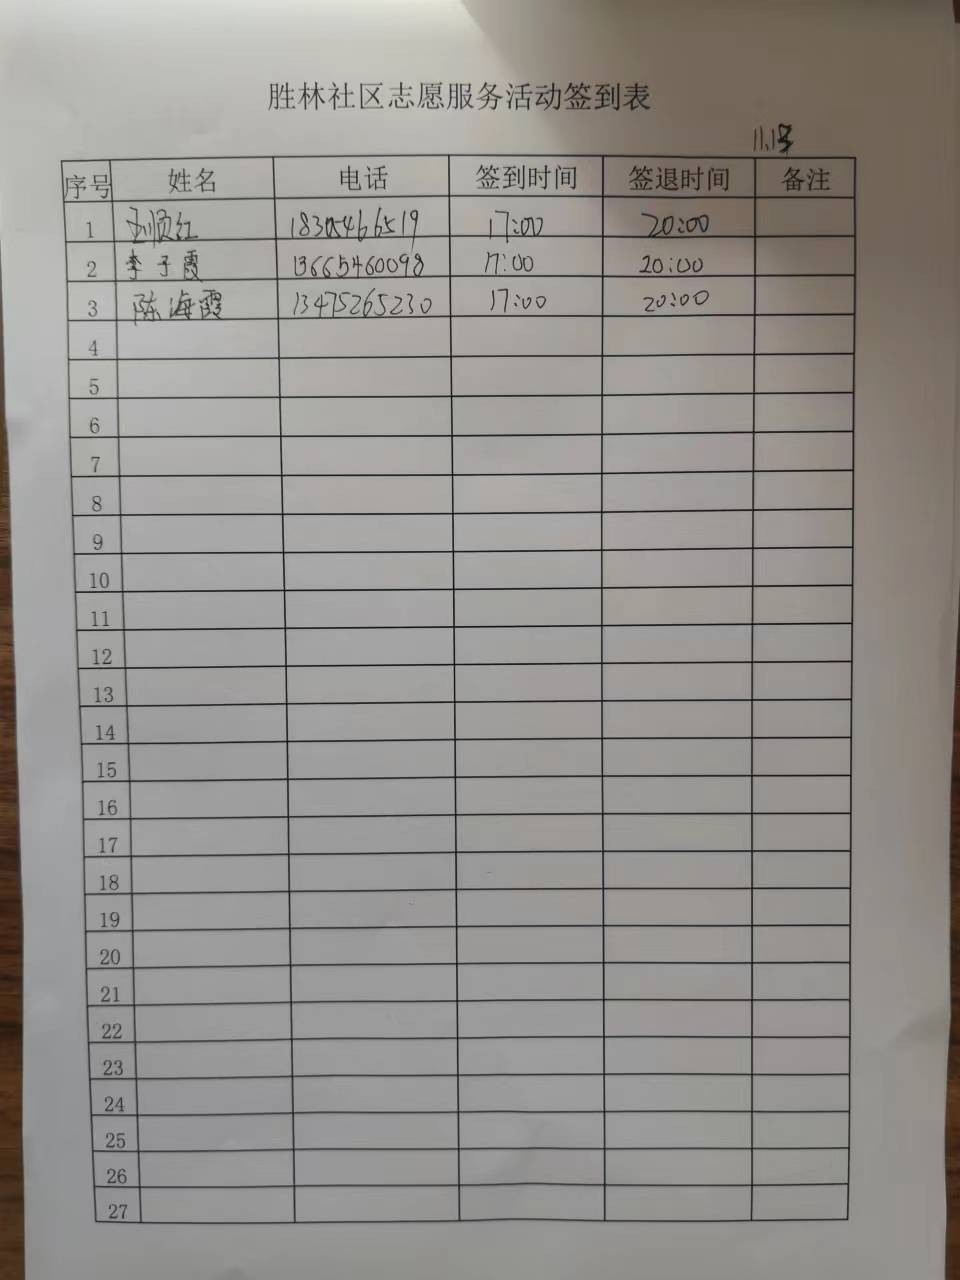 胜林社区志愿服务活动签到表
11.1号
序号 姓名 电话 签到时间 签退时间 备注
1 王顺红 18305466519 17:00 20:00
2 李子霞 13665460098 17:00 20:00
3 陈海霞 13475265230 17:00 20:00
4
5
6
7
8
9
10
11
12
13
14
15
16
17
18
19
20
21
22
23
24
25
26
27